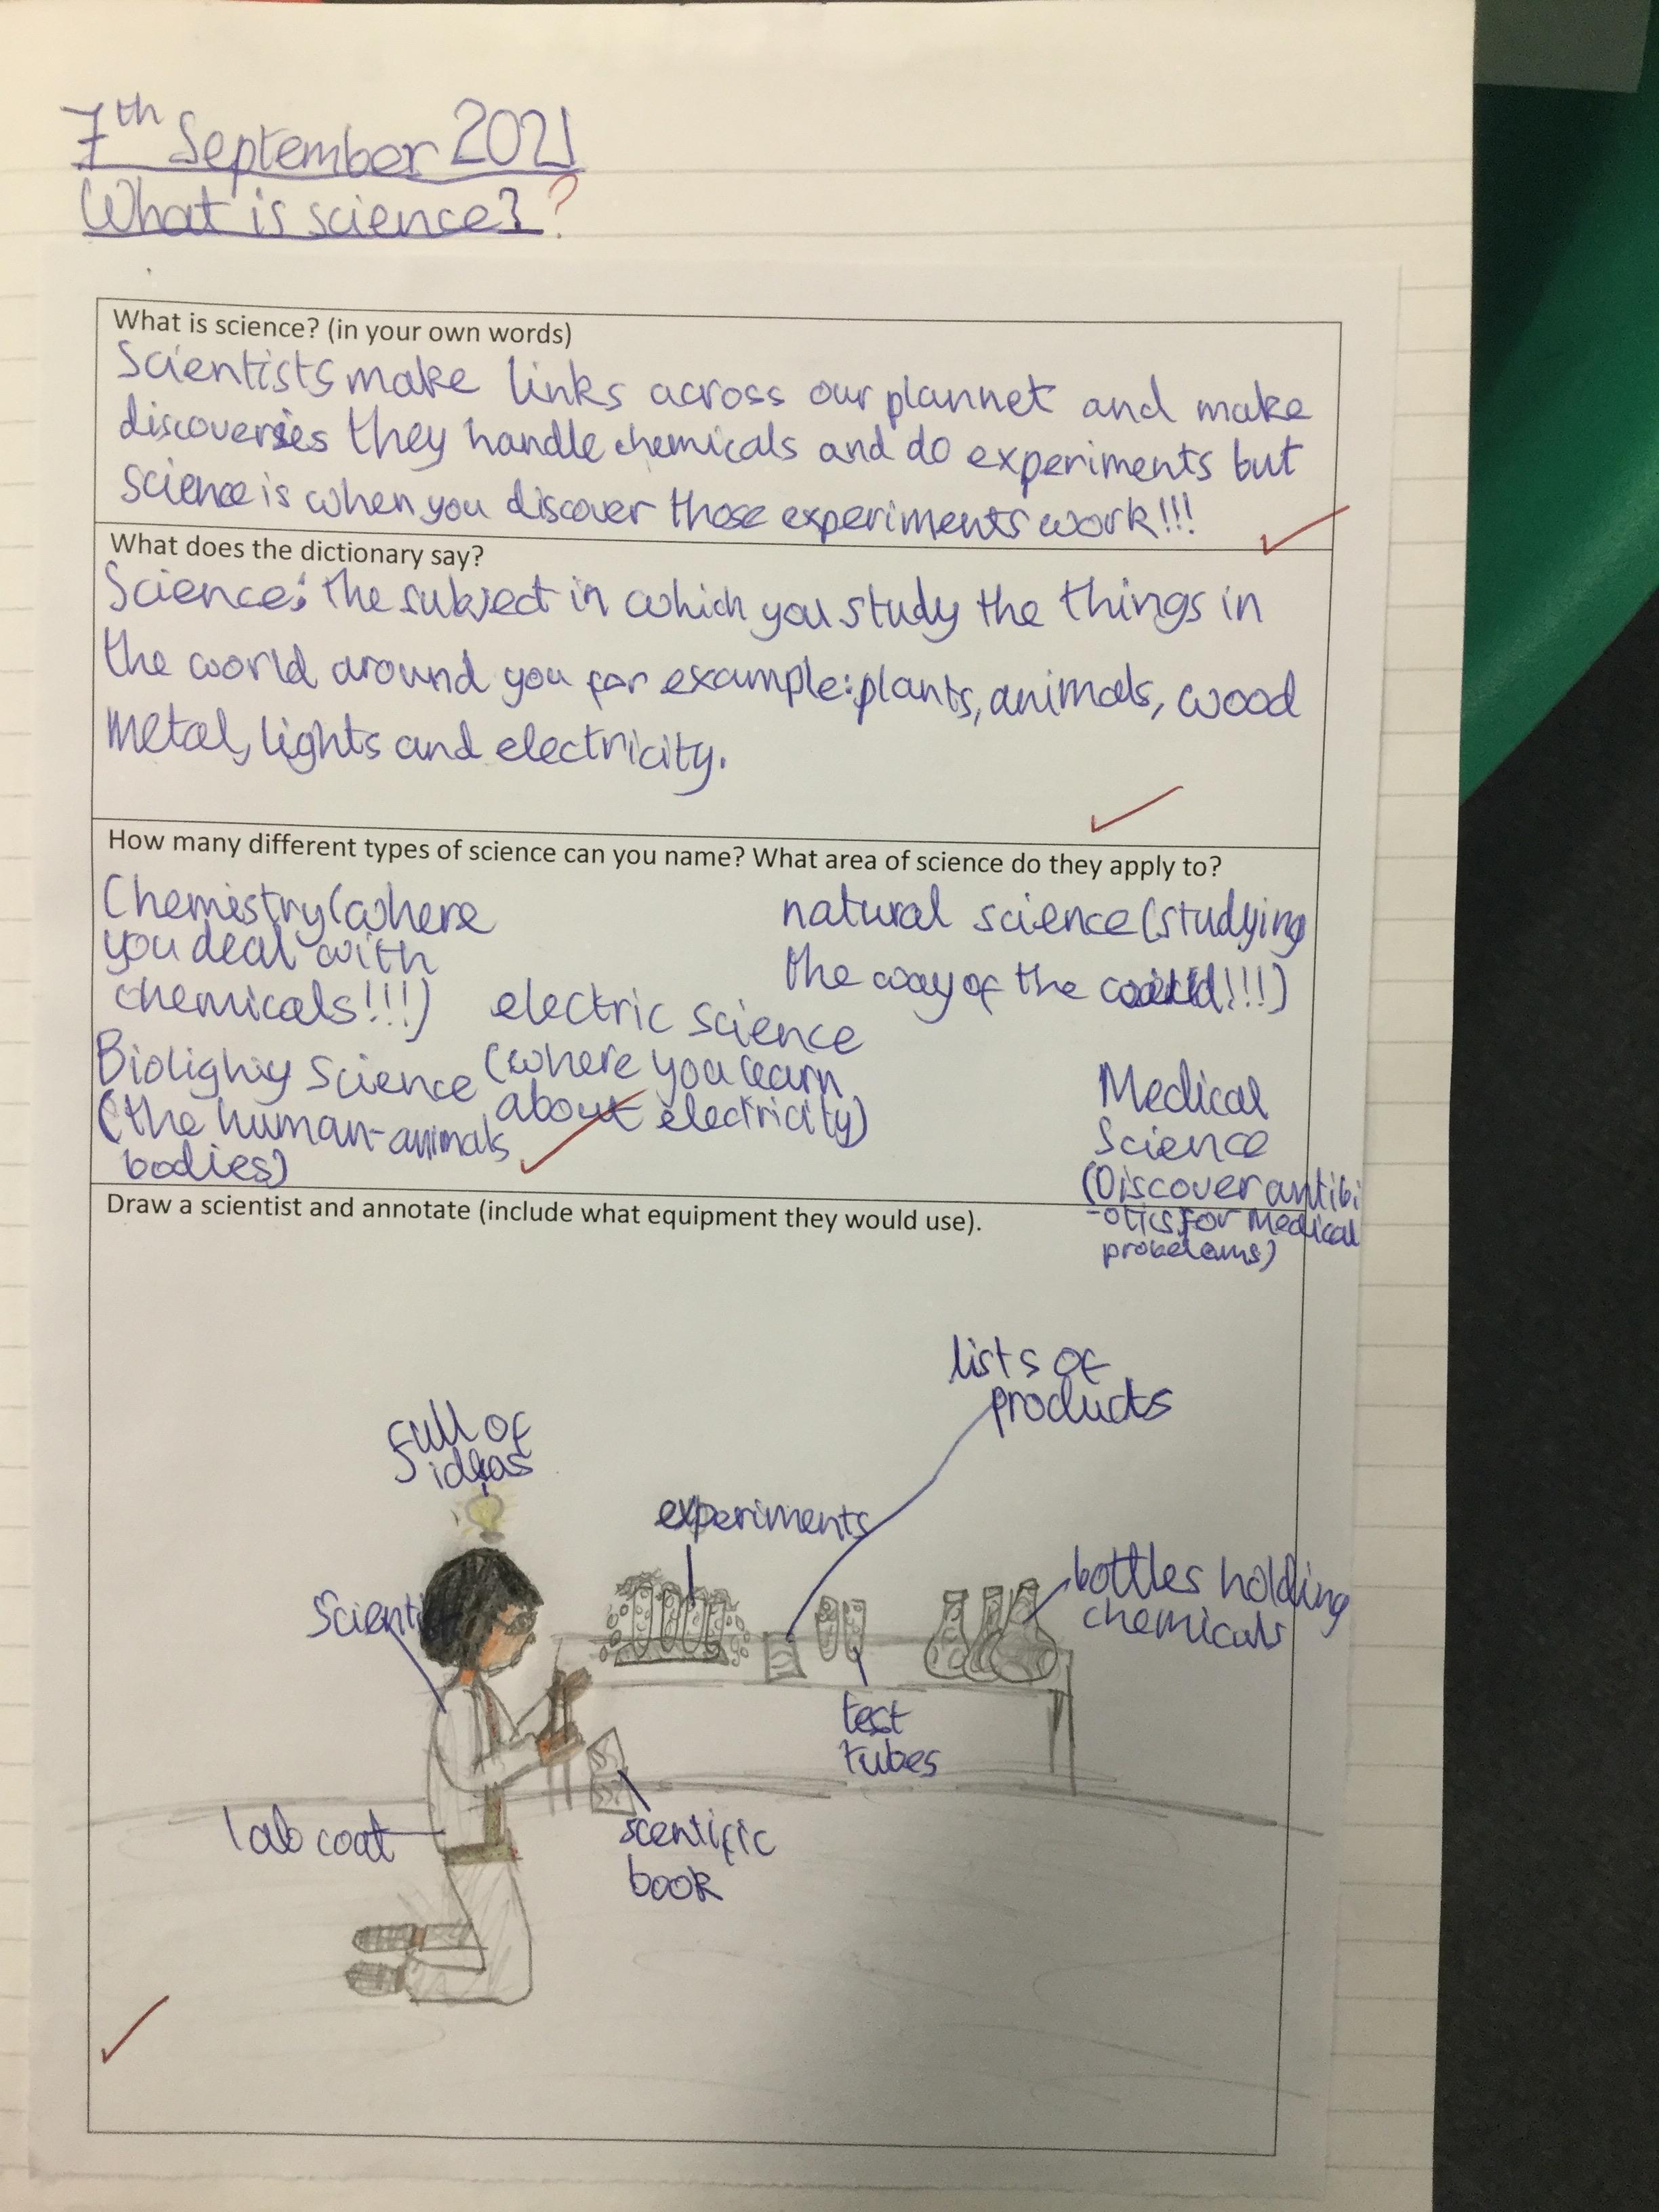 7th September 2021
What is science? ?
What is science? (in your own words)
Scientists make links across our plannet and make
discoveries they handle chemicals and do experiments but
science is when you discover those experiments work!!!
What does the dictionary say?
Science: the subject in which you study the things in
the world around you for example: plants, animals, wood
metal, lights and electricity.
How many different types of science can you name? What area of science do they apply to?
Chemistry (where
you deal with
chemicals!!!)
Biolighiy Science
(the human-animals
bodies)
electric science
(where you learn
about electricity)
natural science (studying
the way of the world!!!)
Medical
Science
(Discover antibi
-otics for Medical
probelams)
Draw a scientist and annotate (include what equipment they would use).
lists of
products
full of
ideas
experiments
bottles holding
chemicals
test
tubes
lab coat
scentific
book